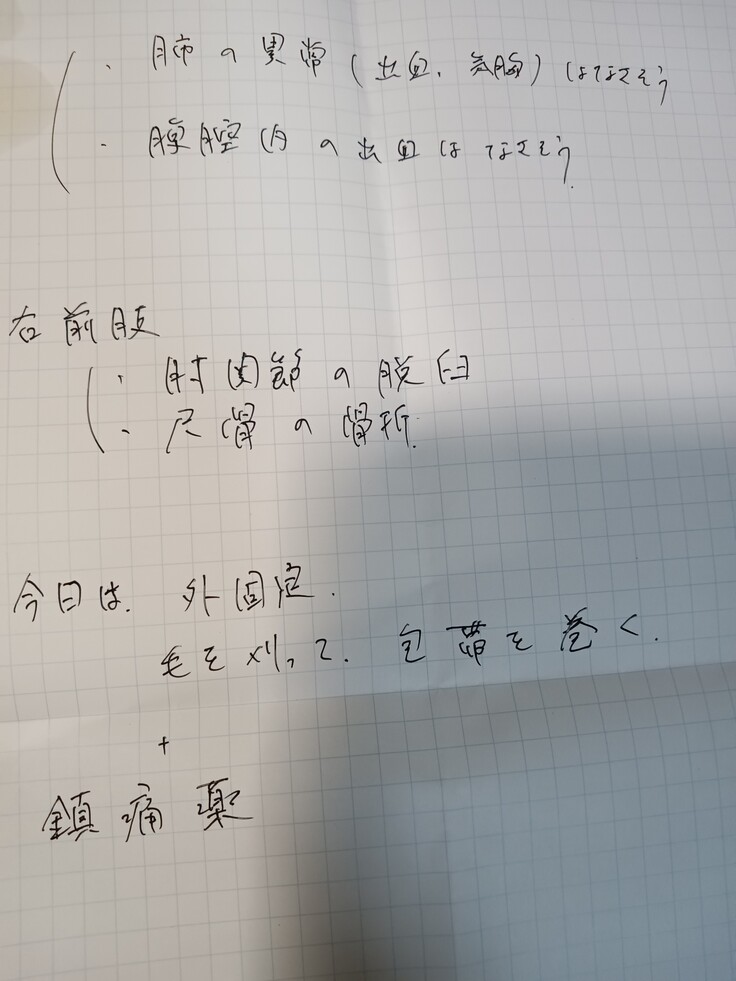 ・肺の異常(出血、気胸)はなさそう
・腹腔内の出血はなさそう.
右前肢
・肘関節の脱臼
・尺骨の骨折.
今日は.外固定.
毛を刈って.包帯を巻く.
+
鎮痛薬